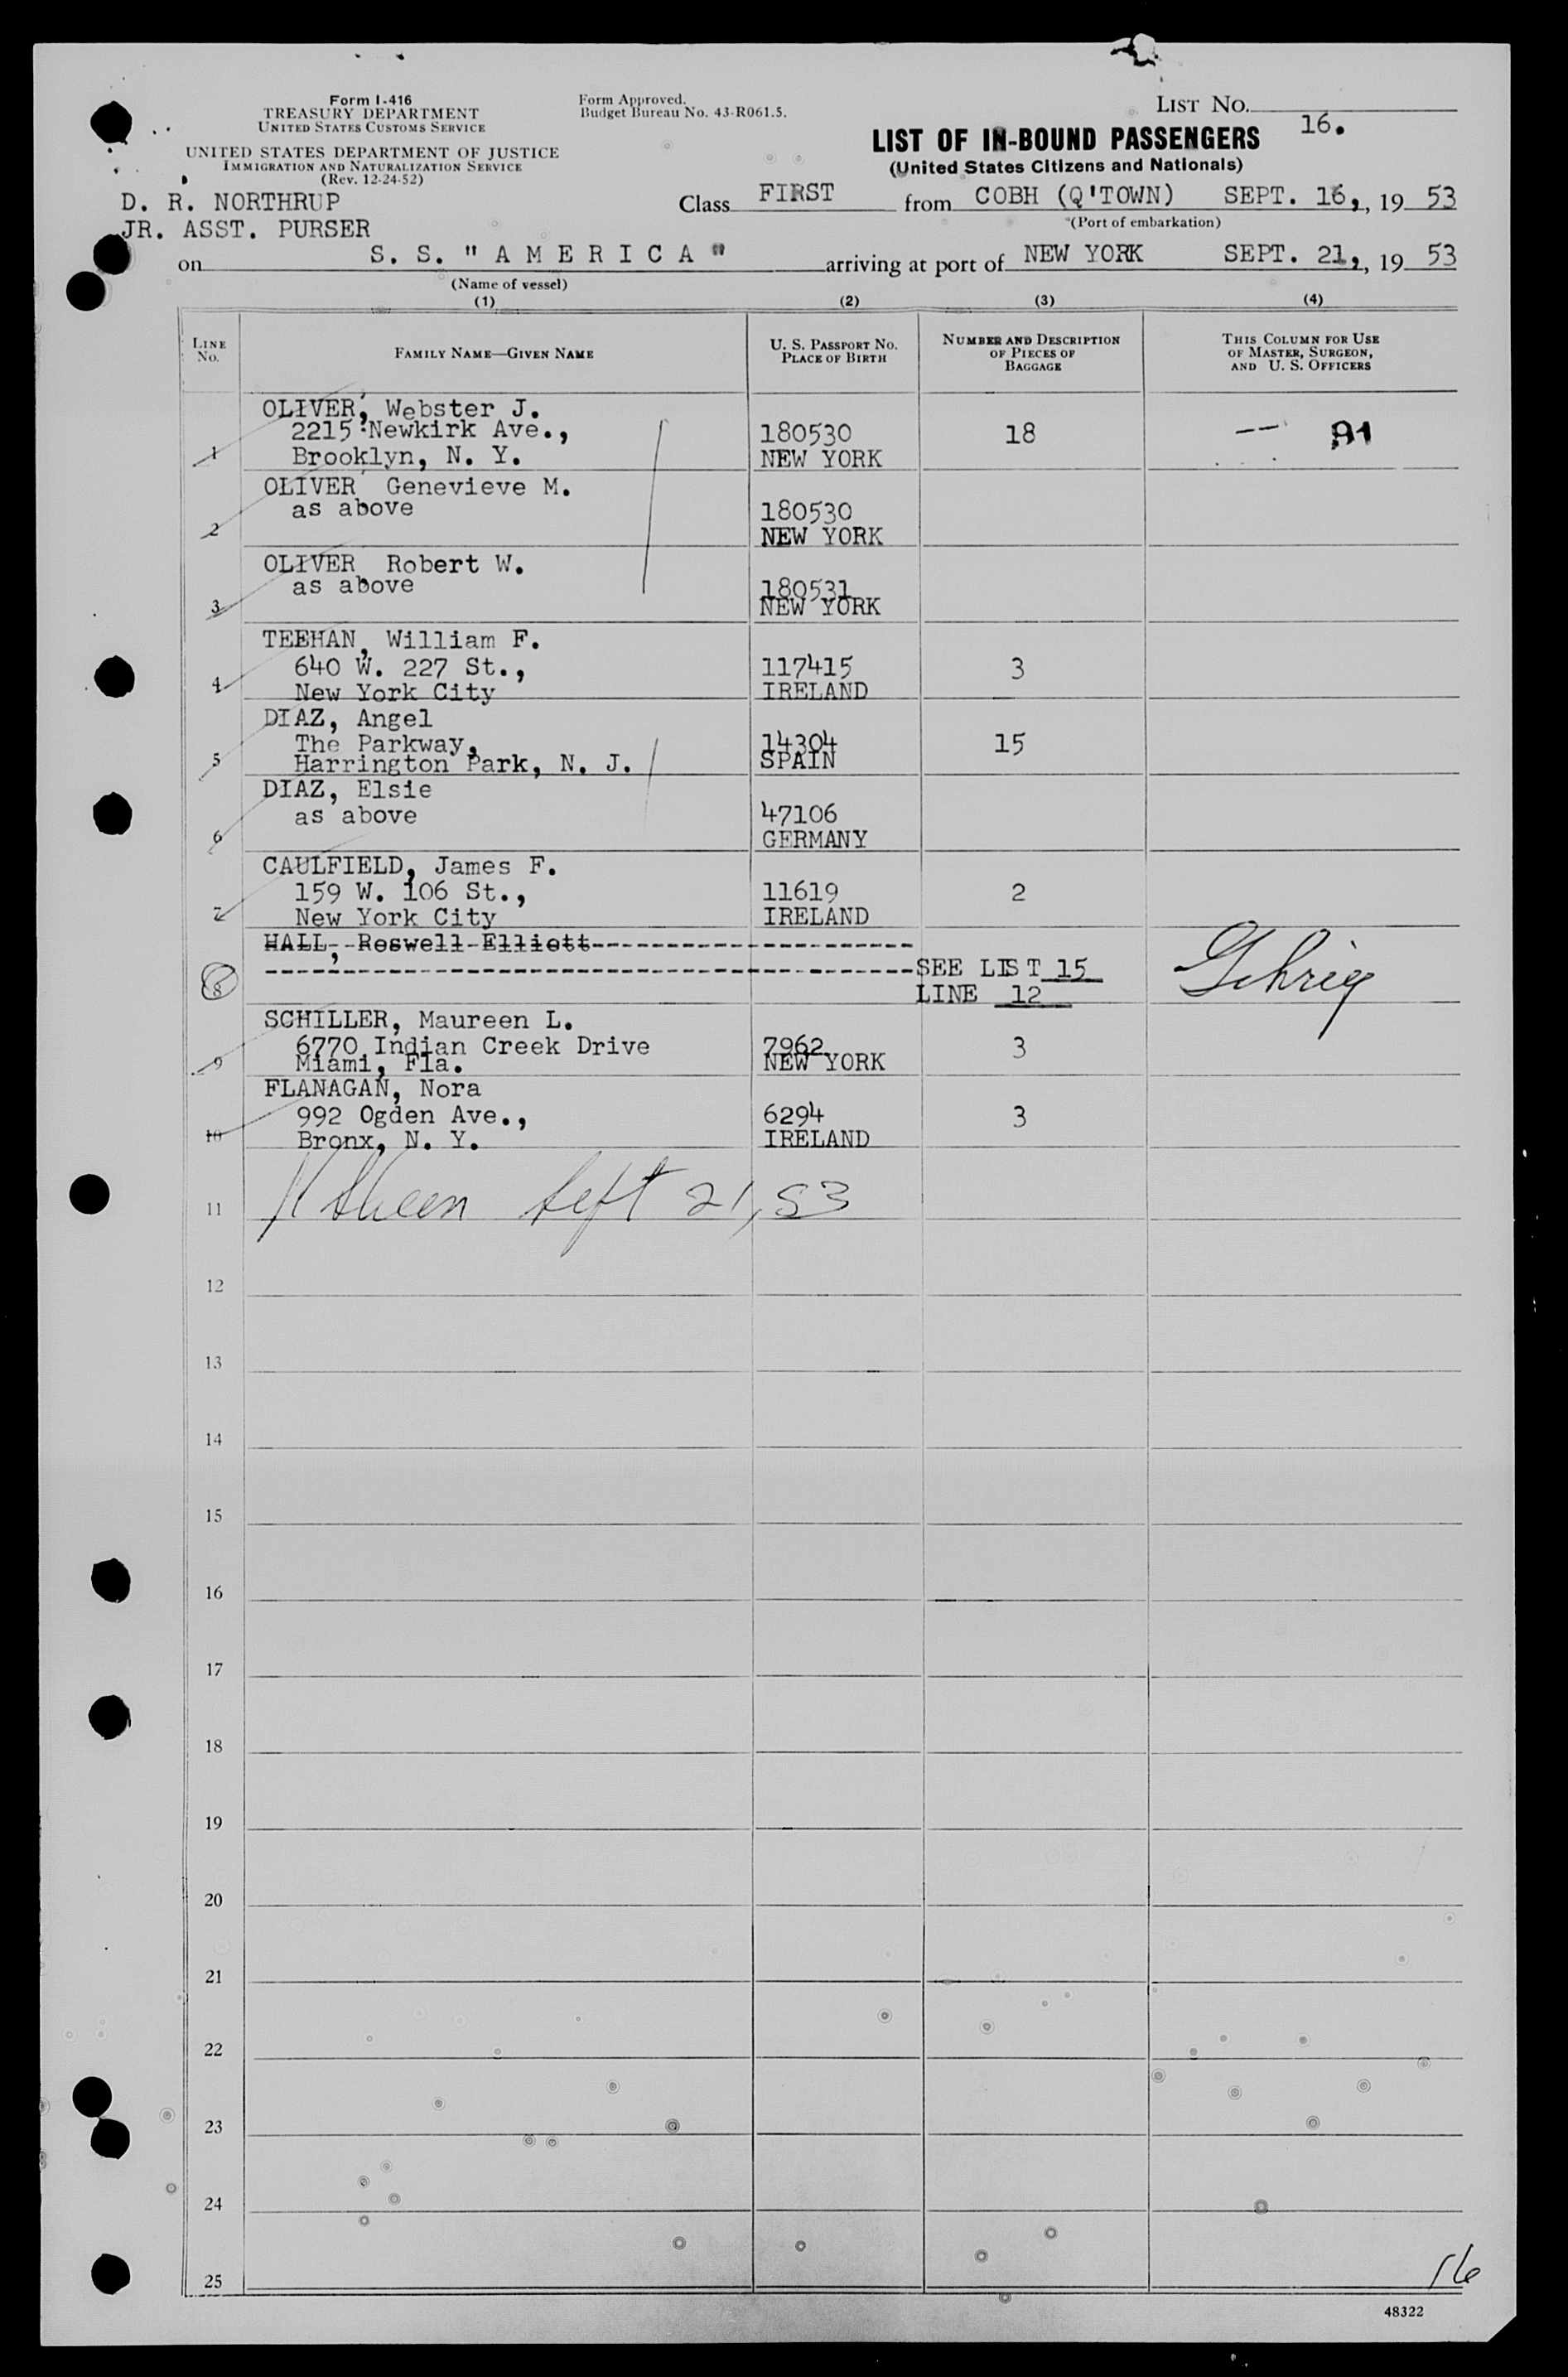 Form I-416
TREASURY DEPARTMENT
UNITED STATES CUSTOMS SERVICE
UNITED STATES DEPARTMENT OF JUSTICE
IMMIGRATION AND NATURALIZATION SERVICE
(Rev. 12-24-52)
Form Approved.
Budget Bureau No. 43-R061.5.
LIST NO. 16.
LIST OF IN-BOUND PASSENGERS
(United States Citizens and Nationals)
D. R. NORTHRUP
JR. ASST. PURSER
Class FIRST from COBH (Q'TOWN) SEPT. 16,, 19 53
(Port of embarkation)
on S. S. "A M E R I C A" arriving at port of NEW YORK SEPT. 21,, 19 53
(Name of vessel)
(1) (2) (3) (4)
LINE NO.
FAMILY NAME—GIVEN NAME
U. S. PASSPORT NO.
PLACE OF BIRTH
NUMBER AND DESCRIPTION
OF PIECES OF
BAGGAGE
THIS COLUMN FOR USE
OF MASTER, SURGEON,
AND U. S. OFFICERS
OLIVER, Webster J.
2215 Newkirk Ave., 180530 18 -- 91
1 Brooklyn, N. Y. NEW YORK
OLIVER Genevieve M.
as above 180530
2 NEW YORK
OLIVER Robert W.
as above 180531
3 NEW YORK
TEEHAN, William F.
640 W. 227 St., 117415 3
4 New York City IRELAND
DIAZ, Angel
The Parkway, 14304 15
5 Harrington Park, N. J. SPAIN
DIAZ, Elsie
as above 47106
6 GERMANY
CAULFIELD, James F.
159 W. 106 St., 11619 2
7 New York City IRELAND
HALL, Roswell Elliott
SEE LIST 15
8 LINE 12
Gehrig
SCHILLER, Maureen L.
6770 Indian Creek Drive 7962 3
9 Miami, Fla. NEW YORK
FLANAGAN, Nora
992 Ogden Ave., 6294 3
10 Bronx, N. Y. IRELAND
11 Sept 21, 53
12
13
14
15
16
17
18
19
20
21
22
23
24
25
16
48322